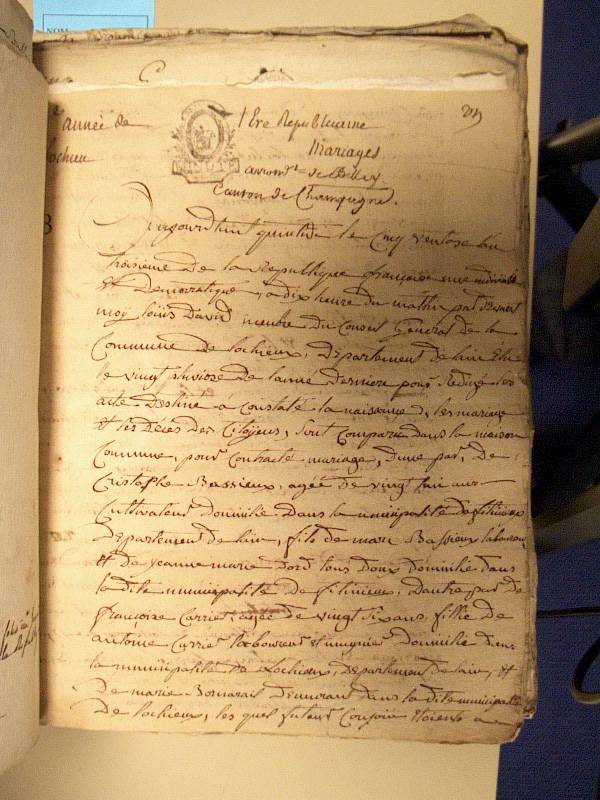 année de
lochieu
1 Ere Republicaine
Mariages
arrond.t de Belley
Canton de Champagne.
Aujourdhui quintidi le Cinq ventose lan
troisieme de la Republique françoise une indivisible
et Democratique, a dix heure du mathin par devant
moy loüis David membre du Conseil General de la
Commune de lochieux, Departement de lain Élu
le vingt pluviose de lanné derniere pour Rediger les
acte Destiné à Constaté la naisanne, les mariage
et les Deces des Citoyens, sont Comparu dans la maison
Commune, pour Contracté mariage, dune par, De
Cristophe Bassieux, agée de vingt huit ans
Cultivateur Domicilié Dans la municipalité de
Departement de lain, fils de marc Bassieux laboureur
et de jeanne marie tous Deux Domicilié dans
la dite municipalité de, Dautre par de
françoise Carrier, agée de vingt six ans, fillie de
antoine Carrier laboureur et mugnier Domicilié Dans
la municipalité de Lochieux, Departement de lain, et
De marie Demeurant Dans la dite municipalité
De lochieux, les quel futeur Conjoin étoient a